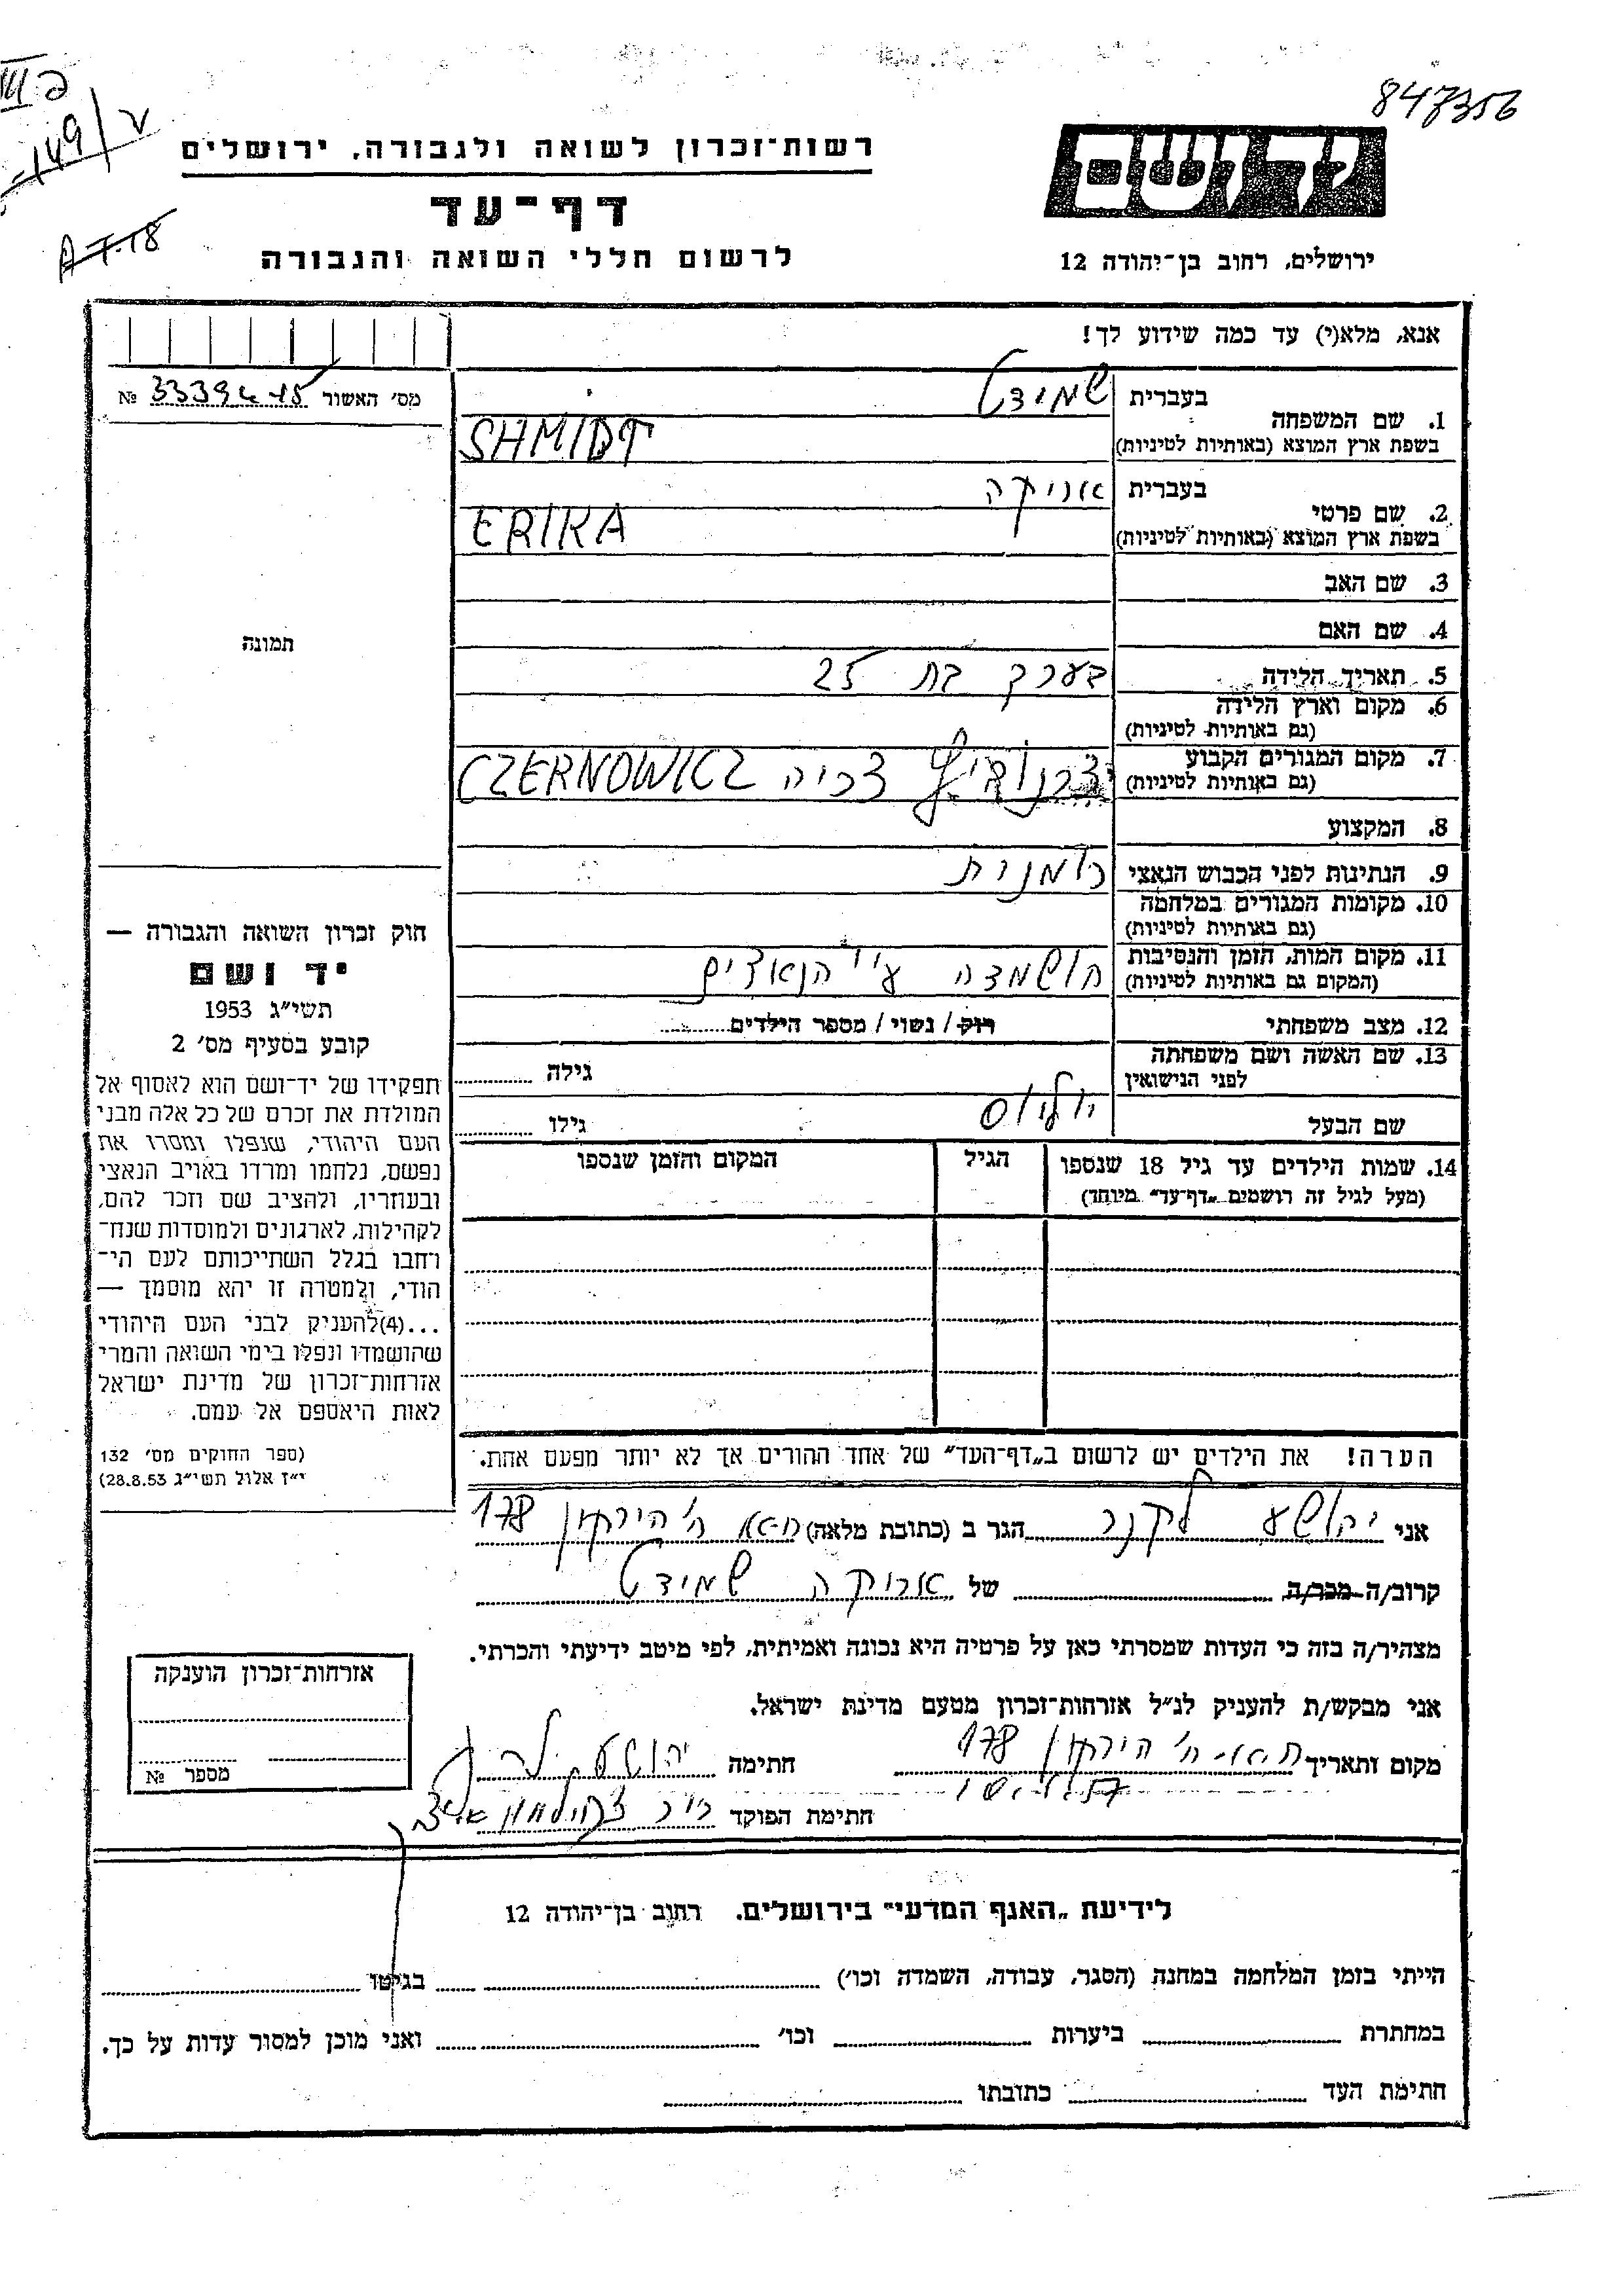 847356
149/ץ
A-7.18
רשות־זכרון לשואה ולגבורה, ירושלים
דף־עד
לרשום חללי השואה והגבורה
יד ושם
ירושלים, רחוב בן־יהודה 12
אנא, מלא(י) עד כמה שידוע לך!
מס' האשור №
1. שם המשפחה
בעברית שמידט
בשפת ארץ המוצא (באותיות לטיניות) SHMIDT
2. שם פרטי
בעברית אריקה
בשפת ארץ המוצא (באותיות לטיניות) ERIKA
3. שם האב
4. שם האם
תמונה
5. תאריך הלידה בערך בת 25
6. מקום וארץ הלידה
(גם באותיות לטיניות)
7. מקום המגורים הקבוע CZERNOWICZ
(גם באותיות לטיניות)
8. המקצוע
9. הנתינות לפני הכבוש הנאצי רומנית
10. מקומות המגורים במלחמה
(גם באותיות לטיניות)
11. מקום המות, הזמן והנסיבות הושמדה ע"י הנאצים
(המקום גם באותיות לטיניות)
12. מצב משפחתי רוק/ נשוי/ מספר הילדים
13. שם האשה ושם משפחתה גילה
לפני הנישואין
שם הבעל יוליוס גילו
14. שמות הילדים עד גיל 18 שנספו הגיל המקום והזמן שנספו
(מעל לגיל זה רושמים „דף־עד” מיוחד)
חוק זכרון השואה והגבורה —
יד ושם
תשי״ג 1953
קובע בסעיף מס' 2
תפקידו של יד־ושם הוא לאסוף אל
המולדת את זכרם של כל אלה מבני
העם היהודי, שנפלו ומסרו את
נפשם, נלחמו ומרדו באויב הנאצי
ובעוזריו, ולהציב שם וזכר להם,
לקהילות, לארגונים ולמוסדות שנח־
רחבו בגלל השתייכותם לעם הי־
הודי, ולמטרה זו יהא מוסמך —
...(4)להעניק לבני העם היהודי
שהושמדו ונפלו בימי השואה והמרי
אזרחות־זכרון של מדינת ישראל
לאות היאספם אל עמם.
(ספר החוקים מס' 132
י״ז אלול תשי״ג 28.8.53)
הערה! את הילדים יש לרשום ב„דף־העד” של אחד ההורים אך לא יותר מפעם אחת.
אני יהושע לקנר הגר ב (כתובת מלאה) ת״א ה' הירקון 178
קרוב/ה מכר/ה של אריקה שמידט
מצהיר/ה בזה כי העדות שמסרתי כאן על פרטיה היא נכונה ואמיתית, לפי מיטב ידיעתי והכרתי.
אני מבקש/ת להעניק לנ״ל אזרחות־זכרון מטעם מדינת ישראל.
מקום ותאריך ת״א ה' הירקון 178 חתימה
חתימת הפוקד
אזרחות־זכרון הוענקה
מספר №
לידיעת „האגף המדעי” בירושלים, רחוב בן־יהודה 12
הייתי בזמן המלחמה במחנה (הסגר, עבודה, השמדה וכו') בגיטו
במחתרת ביערות וכו' ואני מוכן למסור עדות על כך.
חתימת העד כתובתו